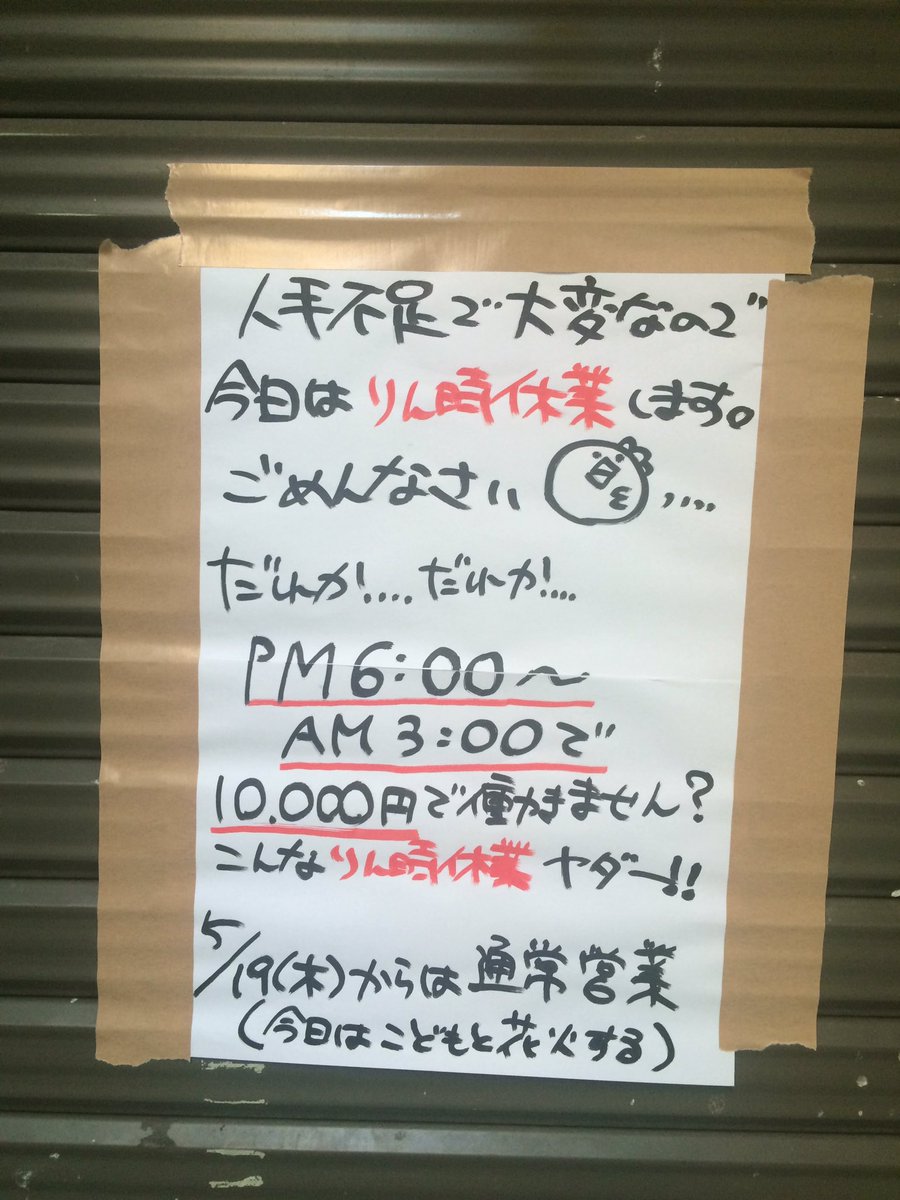 人手不足で大変なので
今日はりん時休業します。
ごめんなさい、....
だれか!....だれか!....
PM6:00〜
AM3:00で
10.000円で働きません?
こんなりん時休業ヤダー!!
5/19(木)からは通常営業
(今日はこどもと花火する)